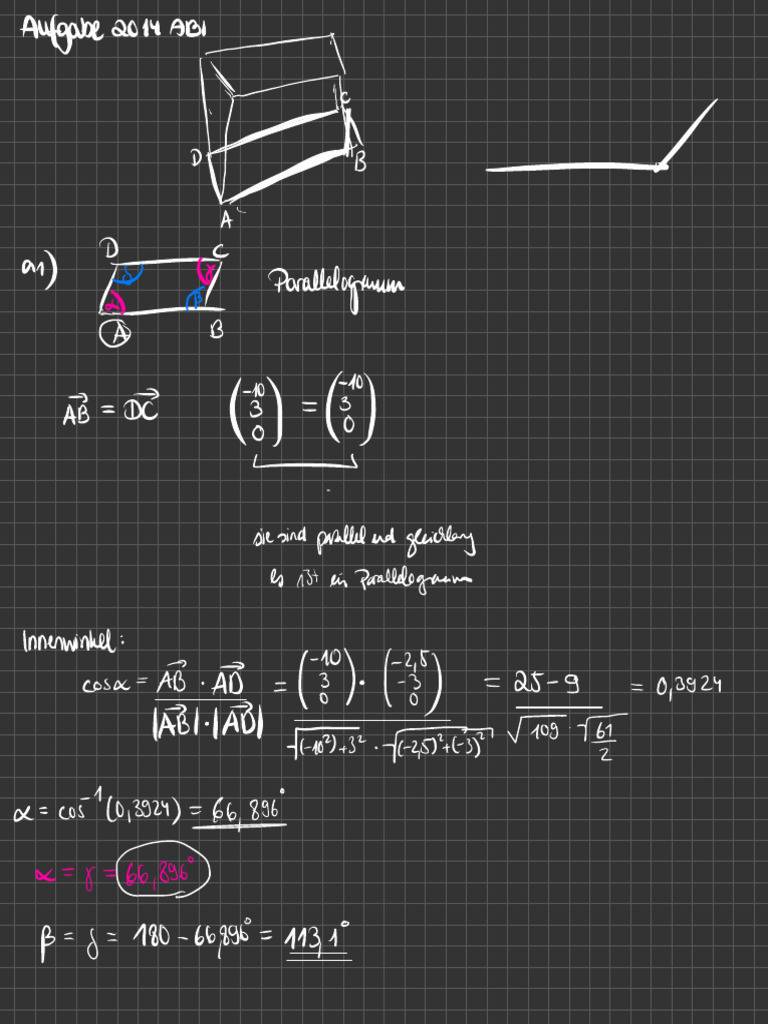 Aufgabe 2014 ABI
C
D
B
A
a1)
D C
δ γ
α β
A B
Parallelogramm
AB = DC (-10 3 0) = (-10 3 0)
sie sind parallel und gleichlang
Es ist ein Parallelogramm
Innenwinkel:
cosα = AB · AD / |AB| · |AD| = (-10 3 0) · (-2,5 -3 0) / √(-10²)+3² · √(-2,5)²+(-3)² = 25-9 / √109 · √61/2 = 0,3924
α = cos⁻¹(0,3924) = 66,896°
α = γ = 66,896°
β = δ = 180 - 66,896° = 113,1°